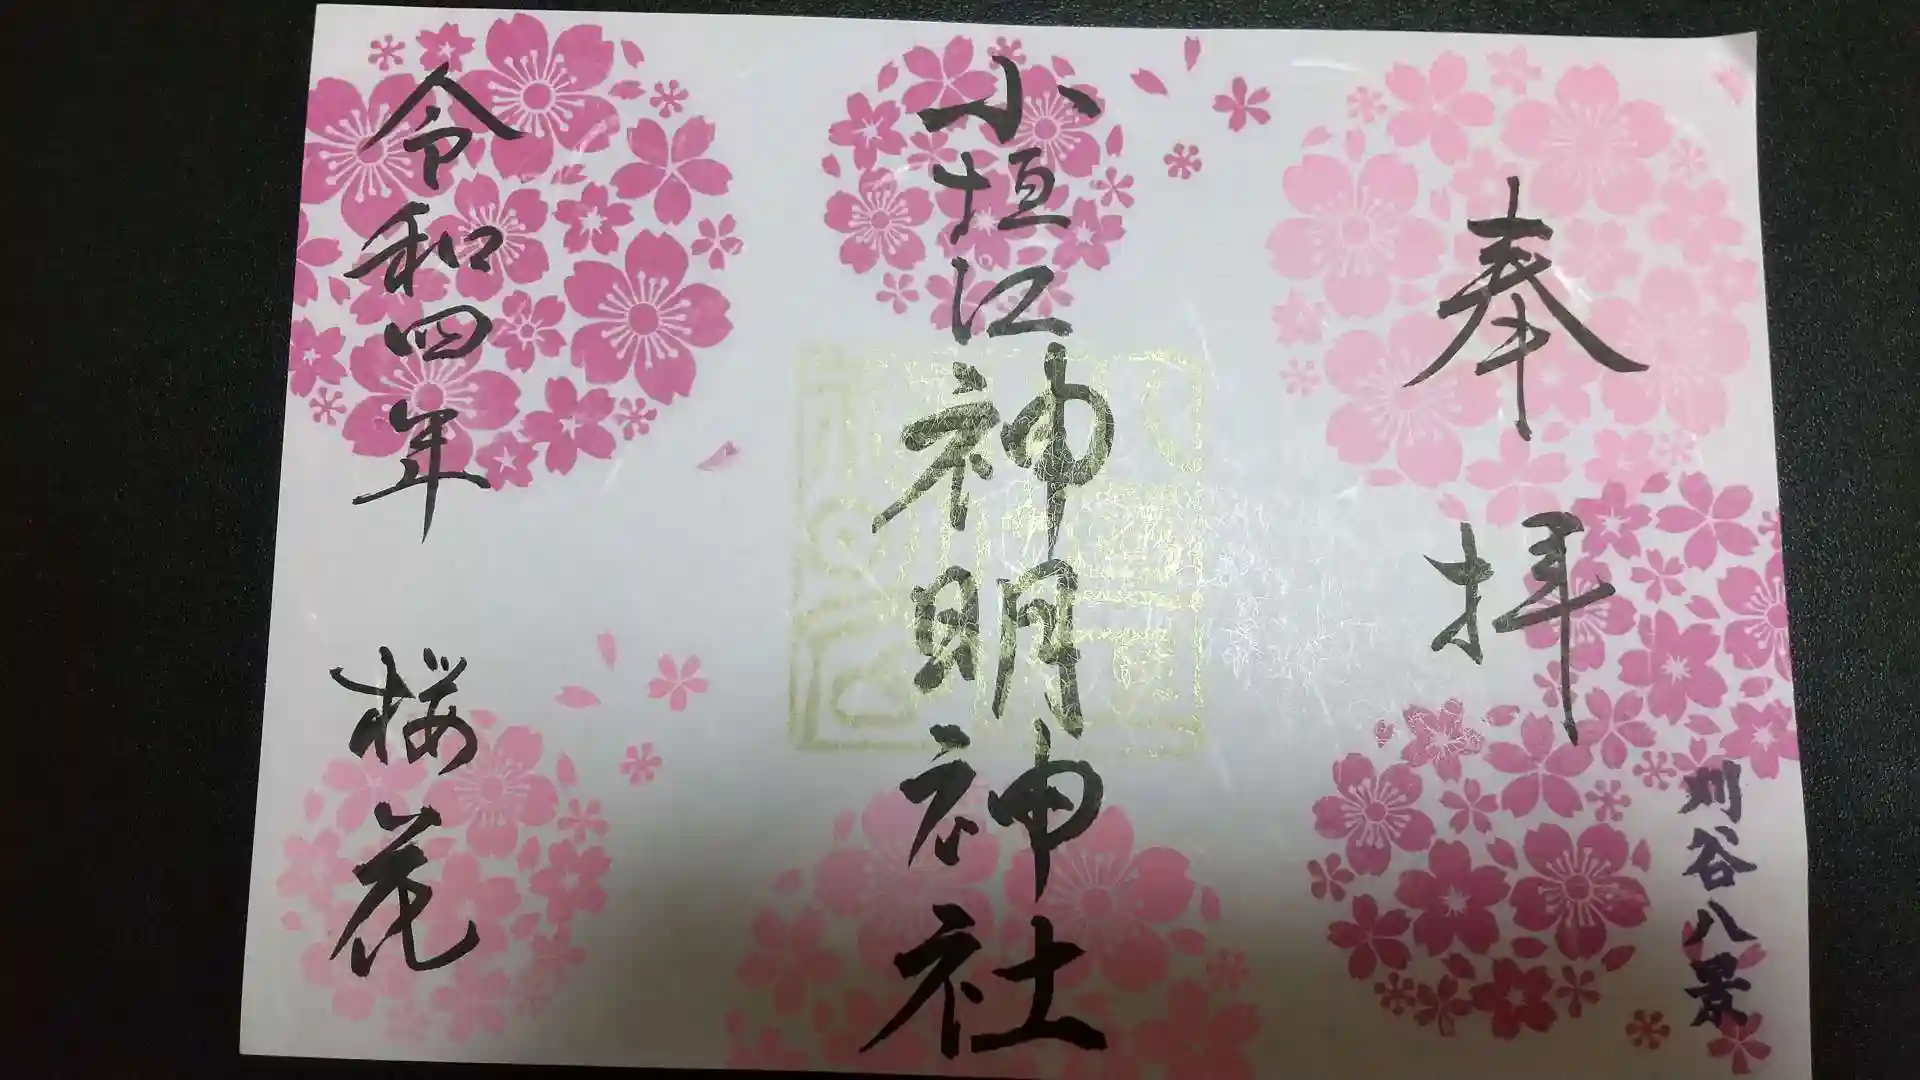 奉拝
刈谷八景
小垣江神明神社
令和四年 桜花